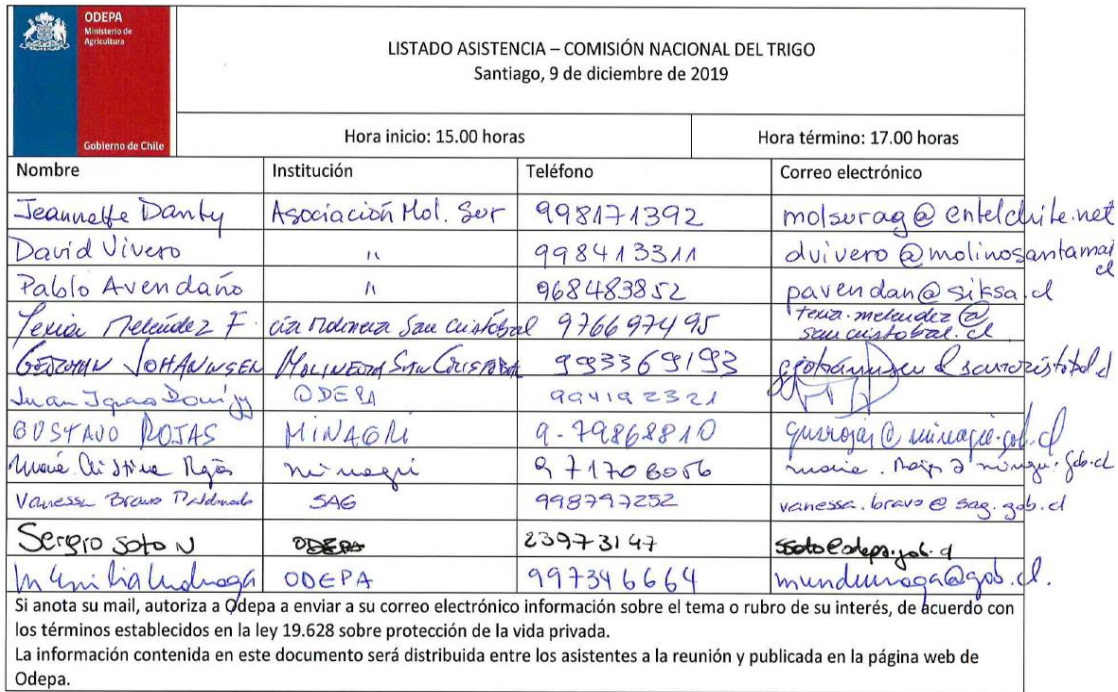 ODEPA
Ministerio de
Agricultura
Gobierno de Chile
LISTADO ASISTENCIA – COMISIÓN NACIONAL DEL TRIGO
Santiago, 9 de diciembre de 2019
Hora inicio: 15.00 horas Hora término: 17.00 horas
Nombre Institución Teléfono Correo electrónico
Jeannette Danty Asociación Mol. Sur 998171392 molsurag@entelchile.net
David Vivero " 998413311 dvivero@molinosantamar
cl
Pablo Avendaño " 968483852 pavendan@siksa.cl
Melendez F. cia Molinera San Cristobal 976697495 melendez@
sancristobal.cl
GERMAN JOHANNSEN MOLINERA SAN CRISTOBAL 993369193
Juan Ignacio ODEPA 994192321
GUSTAVO ROJAS MINAGRI 9-79868810
Maria Cristina Rojas minagri 971708056
Vanessa Bravo Maldonado SAG 998797252 vanessa.bravo@sag.gob.cl
Sergio Soto N ODEPA 23973147 ssoto@odepa.gob.cl
ODEPA 997346664
Si anota su mail, autoriza a Odepa a enviar a su correo electrónico información sobre el tema o rubro de su interés, de acuerdo con
los términos establecidos en la ley 19.628 sobre protección de la vida privada.
La información contenida en este documento será distribuida entre los asistentes a la reunión y publicada en la página web de
Odepa.